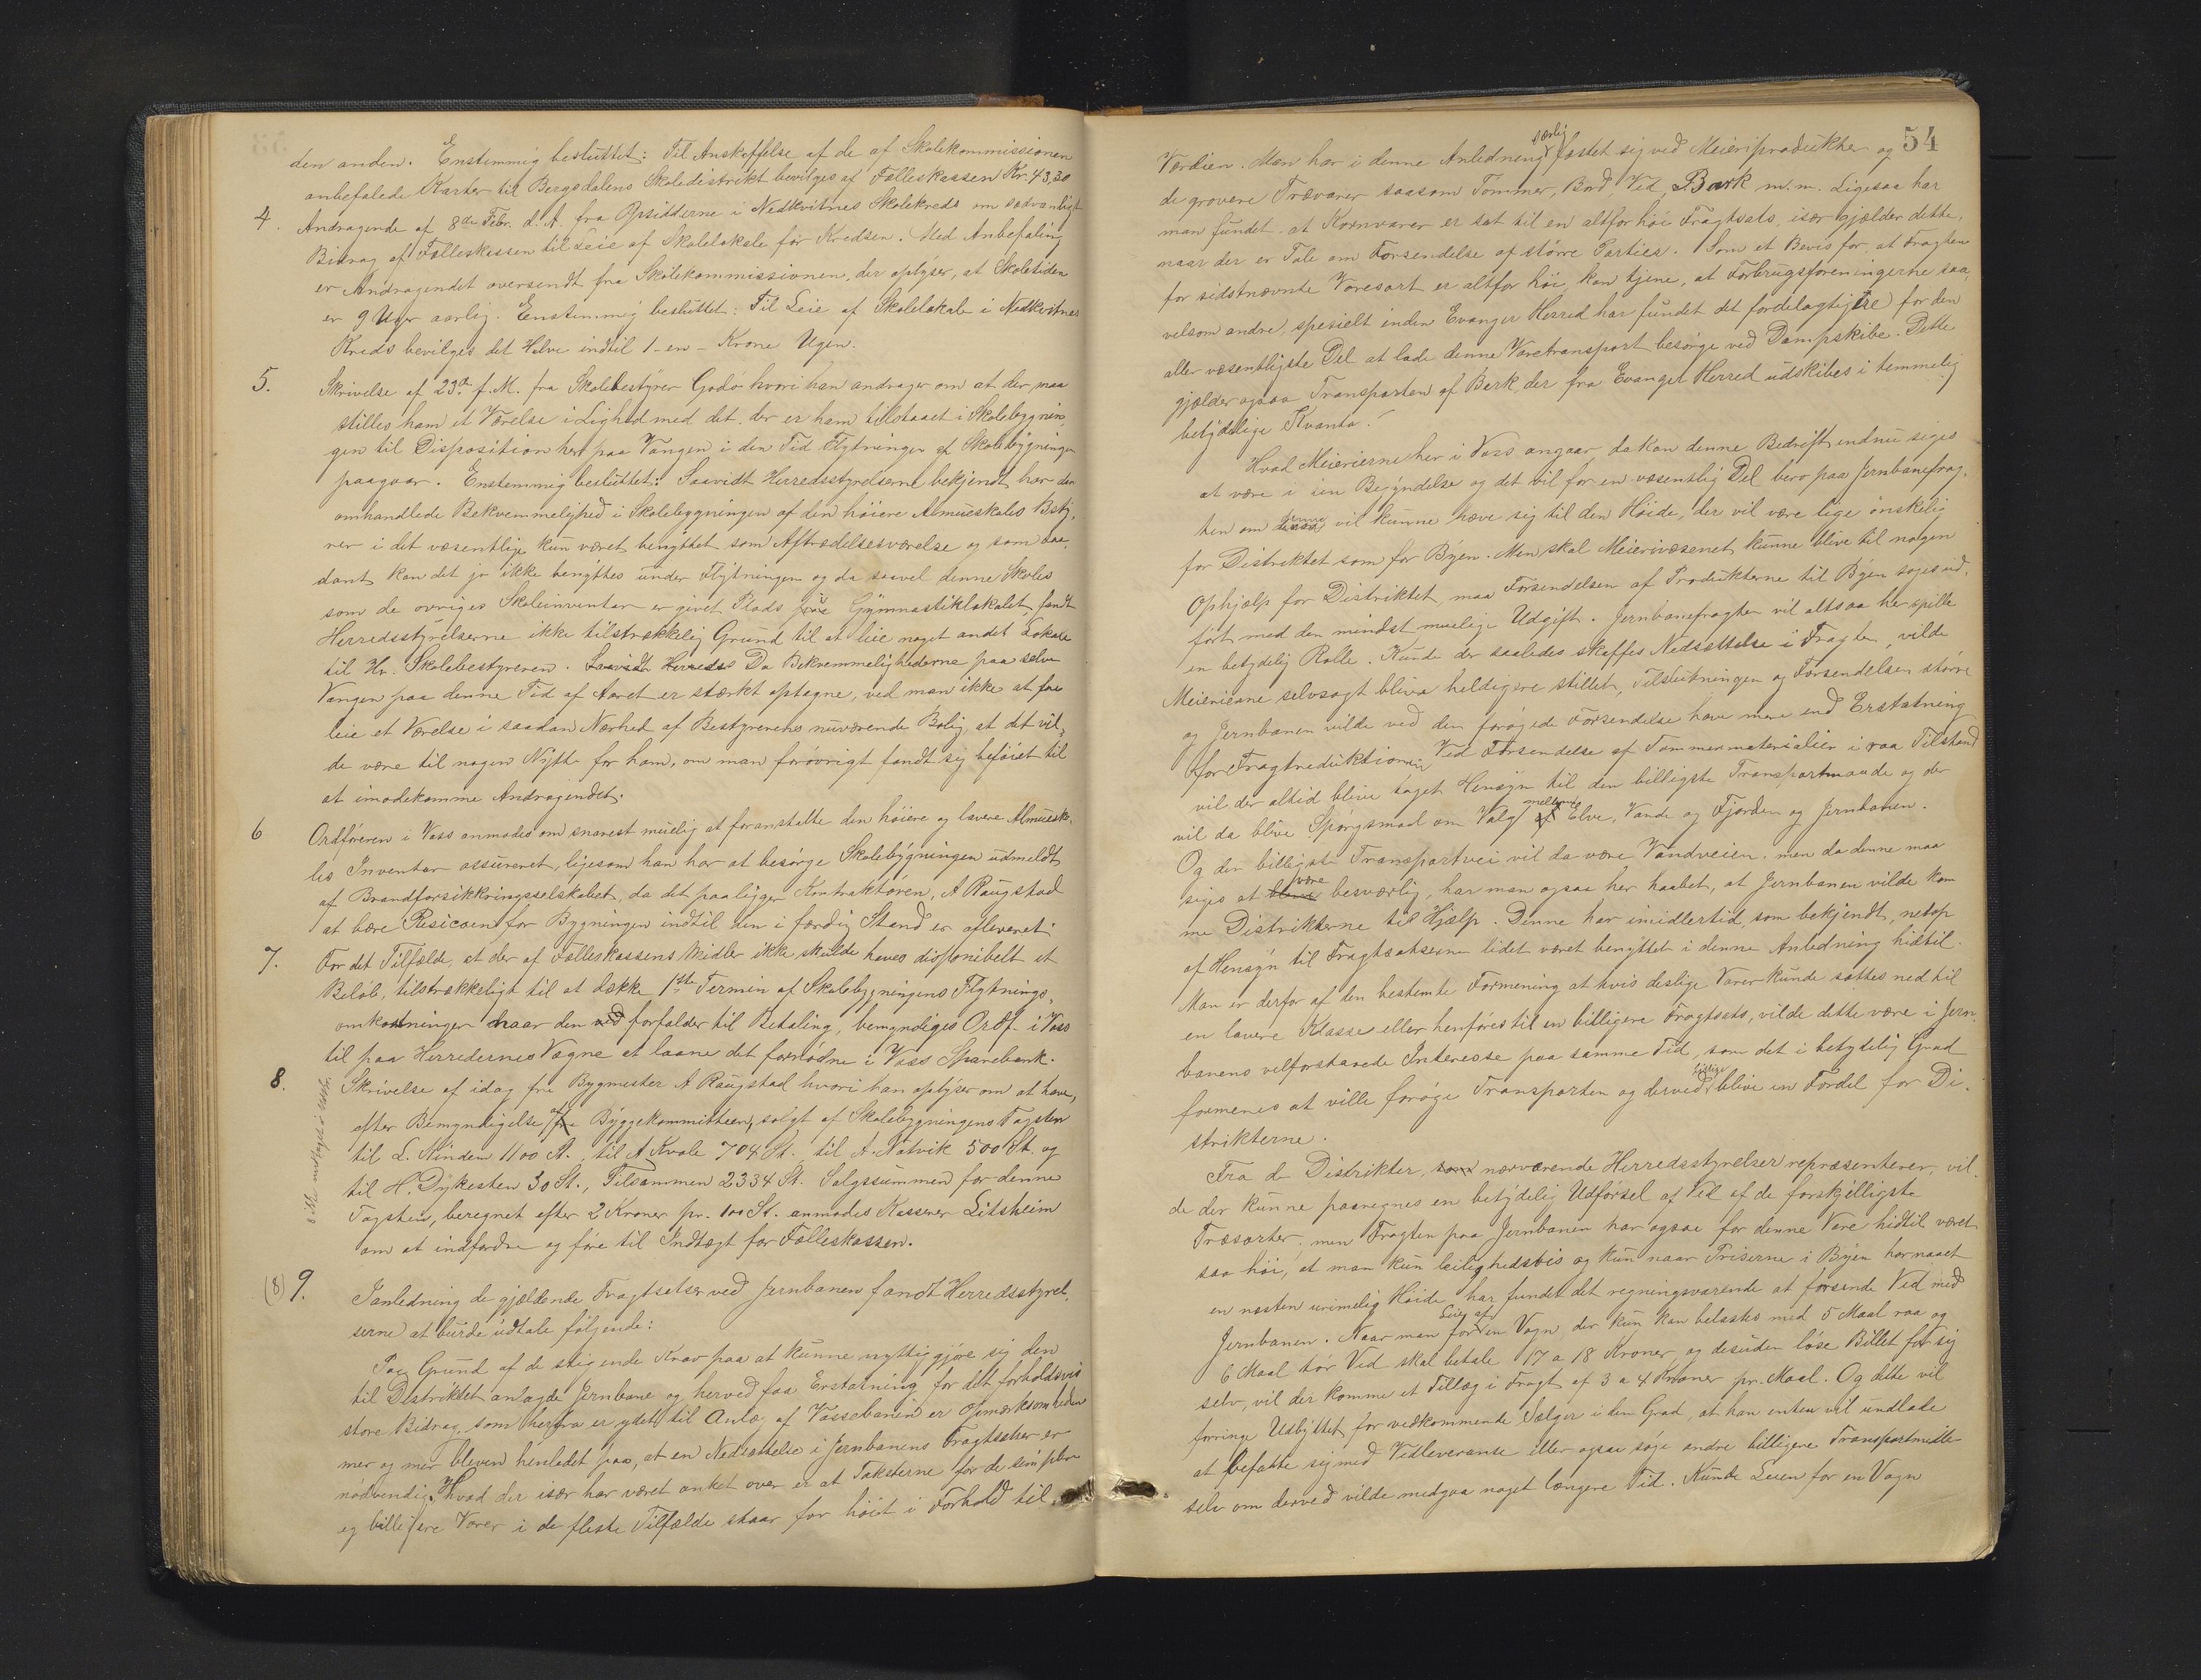 den anden. Enstemmig besluttet: Til Anskaffelse af de af Skolekommissionen
anbefalede Karter til Bergsdalens Skoledistrikt bevilges af Fælleskassen Kr. 43,30
4. Andragende af 8de Febr. d. A. fra Opsidderne i Nedkvitnes Skolekreds om sædvanligt
Bidrag af Fælleskassen til Leie af Skolelokale for Kredsen. Med Anbefaling
er Andragendet oversendt fra Skolekommissionen, der oplyser, at Skoletiden
er 9 Uger aarlig. Enstemmig besluttet: Til Leie af Skolelokale i Nedkvitnes
Kreds bevilges det Halve indtil 1 - en - Krone Ugen.
5. Skrivelse af 23de f. M. fra Skolebestyrer Godø hvori han andrager om at der maa
stilles ham et Værelse i Lighed med det, der er ham tilstaaet i Skolebygnin-
gen til Disposition her paa Vangen i den Tid Flytningen af Skolebygningen
paagaar. Enstemmig besluttet: Saavidt Herredsstyrelserne bekjendt har den
omhandlede Bekvemmelighed i Skolebygningen af den høiere Almueskoles Besty-
rer i det væsentlige kun været benyttet som Aftrædelsesværelse og som saa-
dant kan det jo ikke benyttes under Flytningen og da saavel denne Skoles
som de øvriges Skoleinventar er givet Plads i Gymnastiklokalet fandt
Herredsstyrelserne ikke tilstrækkelig Grund til at leie noget andet Lokale
til Hr. Skolebestyreren. Saavidt Herreds Da Bekvemmelighederne paa selve
Vangen paa denne Tid af Aaret er stærkt optagne, ved man ikke at faa
leie et Værelse i saadan Nærhed af Bestyrerens nuværende Bolig, at det vil-
de være til nogen Nytte for ham, om man forøvrigt fandt sig beføiet til
at imødekomme Andragendet.
6 Ordføreren i Voss anmodes om snarest muelig at foranstalte den høiere og lavere Almuesko-
les Inventar assureret, ligesom han har at besørge Skolebygningen udmeldt
af Brandforsikkringsselskabet, da det paaligger Kontraktøren, A Raugstad
at bære Risicoen for Bygningen indtil den i færdig Stand er afleveret.
7. For det Tilfælde, at der af Fælleskassens Midler ikke skulde haves disponibelt et
Beløb, tilstrækkeligt til at dække 1ste Termin af Skolebygningens Flytnings-
omkostninger naar den ved forfalder til Betaling, bemyndiges Ordf. i Voss
til paa Herredernes Vegne at laane det fornødne i Voss Sparebank.
8. Skrivelse af idag fra Bygmester A Raugstad hvori han oplyser om at have,
efter Bemyndigelse af Byggekommitteen, solgt af Skolebygningens Tagsten
til L. Ninden 1100 St., til A Kvale 704 St. til A. Nátvik 500 St. og
til H. Dykesten 30 St., Tilsammen 2334 St. Salgssummen for denne
Tagsten, beregnet efter 2 Kroner pr. 100 St. anmodes Kasserer Litsheim
om at indfordre og føre til Indtægt for Fælleskassen.
(8) 9. Ianledning de gjældende Fragtsatser ved Jernbanen fandt Herredsstyrel-
serne at burde udtale følgende:
Paa Grund af de stigende Krav paa at kunne nyttiggjøre sig den
til Distriktet anlagde Jernbane og herved faa Erstatning for det forholdsvis
store Bidrag, som herfra er ydet til Anlæg af Vossebanen er Opmærksomheden
mer og mer bleven henledet paa, at en Nedsættelse i Jernbanens Fragtsatser er
nødvendig. Hvad der især har været anket over er at Taksterne for de simplere
og billigere Varer i de fleste Tilfælde staar for høit i Forhold til
54
særlig
Værdien. Man har i denne Anledning fæstet sig ved Meieriprodukter og
de grovere Trævarer saasom Tømmer, Bord, Ved, Bark m. m. Ligesaa har
man fundet at Kornvarer er sat til en altfor høi Fragtsats, især gjælder dette,
naar der er Tale om Forsendelse af større Partier. Som et Bevis for, at Fragten
for sidstnævnte Varesort er altfor høi, kan tjene, at Forbrugsforeningerne saa-
velsom andre, spesielt inden Evanger Herred har fundet det fordelagtigere for den
aller væsentligste Del at lade denne Varetransport besørge ved Dampskibe. Dette
gjælder ogsaa Transporten af Bark, der fra Evanger Herred udskibes i temmelig
betydelige Kvanta.
Hvad Meierierne her i Voss angaar, da kan denne Bedrift endnu siges
at være i sin Begyndelse og det vil for en væsentlig Del bero paa Jernbanefrag-
ten om denne vil kunne hæve sig til den Høide, der vil være lige ønskelig
for Distriktet som for Byen. Men skal Meierivæsenet kunne blive til nogen
Ophjælp for Distriktet, maa Forsendelsen af Produkterne til Byen søges ud-
ført med den mindst muelige Udgift. Jernbanefragten vil altsaa her spille
en betydelig Rolle. Kunde der saaledes skaffes Nedsættelse i Fragten, vilde
Meierierne selvsagt bliva heldigere stillet, Tilslutningen og Forsendelsen større
og Jernbanen vilde ved den forøgede Forsendelse have mere end Erstatning
for Fragtreduktionen. Ved Forsendelse af Tømmermaterialier i raa Tilstand
vil der altid blive taget Hensyn til den billigste Transportmaade og der
vil da blive Spørgsmaal om Valg mellem Elve, Vande og Fjorden og Jernbanen.
Og den billigste Transportvei vil da være Vandveien, men da denne maa
siges at være besværlig, har man ogsaa her haabet, at Jernbanen vilde kom
me Distrikterne til Hjælp. Denne har imidlertid, som bekjendt, netop
af Hensyn til Fragtsatserne lidet været benyttet i denne Anledning hidtil.
Man er derfor af den bestemte Formening at hvis deslige Varer kunde sættes ned til
en lavere Klasse eller henføres til en billigere Fragtsats, vilde dette være i Jern-
banens velforstaaede Interesse paa samme Tid, som det i betydelig Grad
formenes at ville forøge Transporten og derved blive en Fordel for Di-
strikterne.
Fra de Distrikter, som nærværende Herredsstyrelser repræsenterer, vil-
de der kunne paaregnes en betydelig Udførsel af Ved af de forskjelligste
Træsorter, men Fragten paa Jernbanen har ogsaa for denne Vare hidtil været
saa høi, at man kun leilighedsvis og kun naar Priserne i Byen har naaet
en næsten urimelig Høide har fundet det regningsvarende at forsende Ved med
Jernbanen. Naar man for Leie af en Vogn, der kun kan belastes med 5 Maal raa og
6 Maal tør Ved skal betale 17 a 18 Kroner, og desuden løse Billet for sig
selv, vil der komme et Tillæg i Fragt af 3 a 4 Kroner pr. Maal. Og dette vil
forringe Udbyttet for vedkommende Sælger i den Grad, at han enten vil undlade
at befatte sig med Vedleveranse eller ogsaa søge andre billigere Transportmidle
selv om derved vilde medgaa noget længere Tid. Kunde Leien for en Vogn